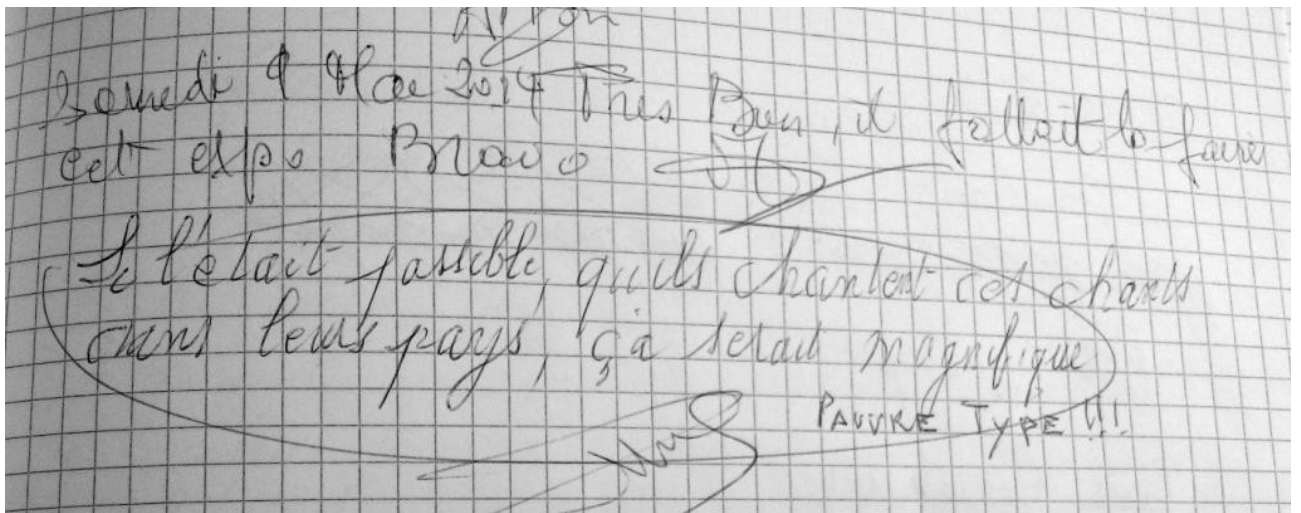 Samedi Mai 2014 Tres Bon, it fallait la faire
cet expo Bravo
Si c'était possible, quills chantent ces chants
dans leurs pays, çà serait magnifique
PAUVRE TYPE !!!